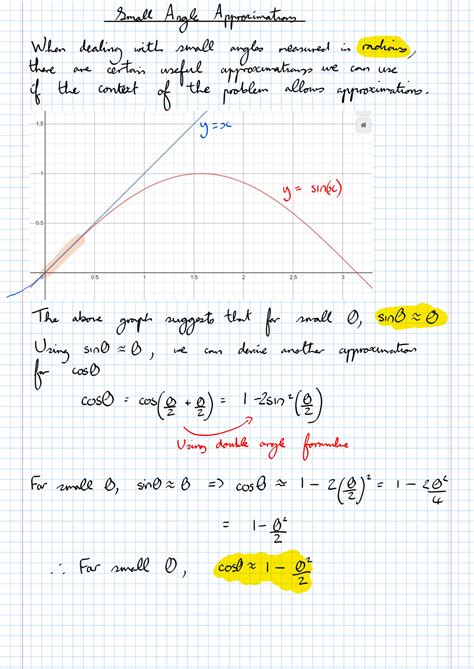 Small Angle Approximations
When dealing with small angles measured in radians,
there are certain useful approximations we can use
if the context of the problem allows approximations.
1.5
y=x
1
y = sin(x)
0.5
0 0.5 1 1.5 2 2.5 3
The above graph suggests that for small θ, sinθ ≈ θ
Using sinθ ≈ θ, we can derive another approximation
for cosθ
cosθ = cos(θ/2 + θ/2) = 1-2sin²(θ/2)
Using double angle formulae
For small θ, sinθ ≈ θ => cosθ ≈ 1 - 2(θ/2)² = 1 - 2θ²/4
= 1 - θ²/2
∴ For small θ, cosθ ≈ 1 - θ²/2